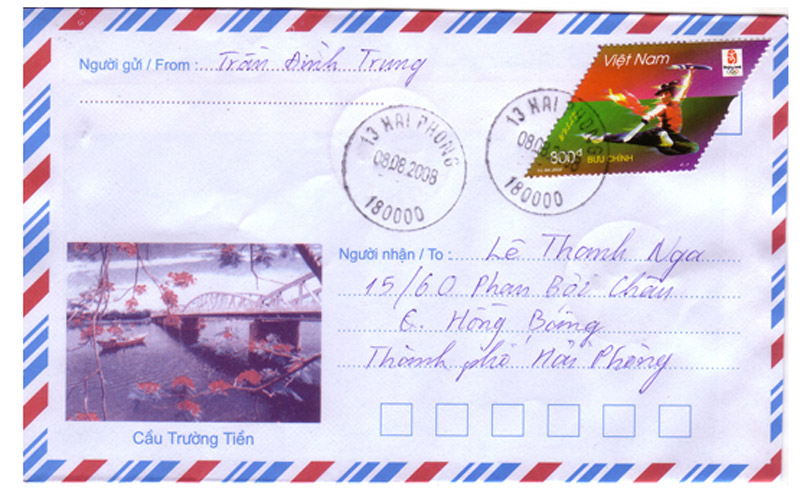 Người gửi / From : Trần Đình Trung
Việt Nam
800đ BƯU CHÍNH
13 HAI PHONG
08.08.2008
180000
13 HAI PHONG
180000
Người nhận / To : Lê Thanh Nga
15/60 Phan Bội Châu
Q. Hồng Bàng
Thành phố Hải Phòng
Cầu Trường Tiền